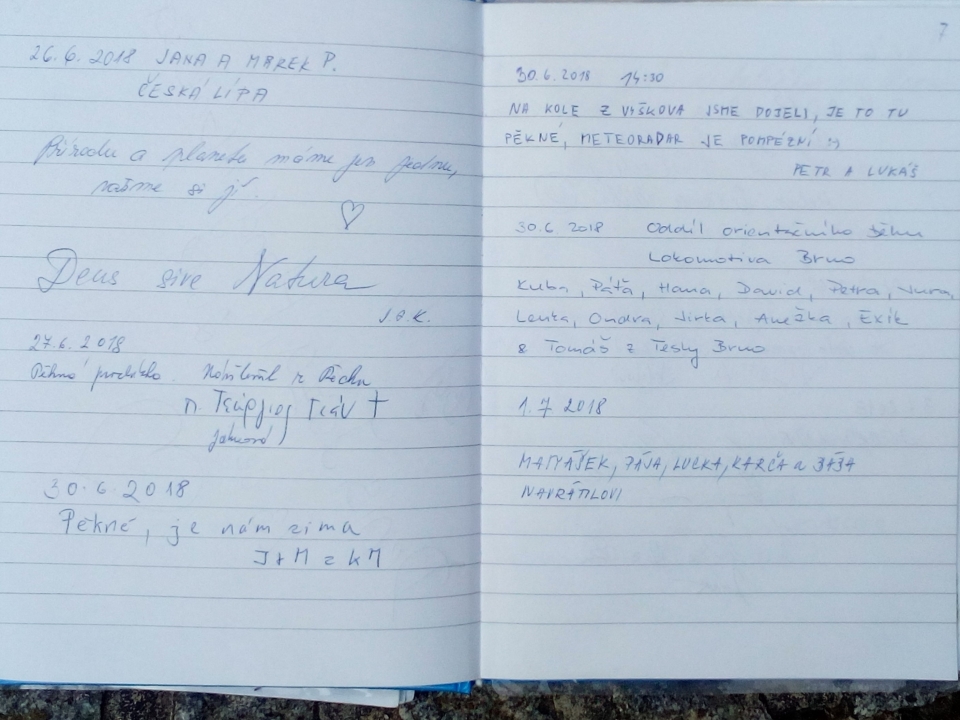 26.6.2018 JANA A MAREK P.
ČESKÁ LÍPA
Přírodu a planetu máme jen jednu,
važme si jí.
Deus sive Natura
J.a.K.
27.6.2018
Pěkné
π. Γεώργιος Γιάν
30.6.2018
Pěkné, je nám zima
J+M z KM
7
30.6.2018 14:30
NA KOLE Z VYŠKOVA JSME DOJELI, JE TO TU
PĚKNÉ, METEORADAR JE POMPÉZNÍ :)
PETR A LUKÁŠ
30.6.2018 Oddíl orientačního běhu
Lokomotiva Brno
Kuba, Páťa, Hana, David, Petra, Jura,
Lenka, Ondra, Jirka, Anežka, Exík
& Tomáš z Tesly Brno
1.7 2018
MATYÁŠEK, PÁJA, LUCKA, KARČA a
NAVRÁTILOVI